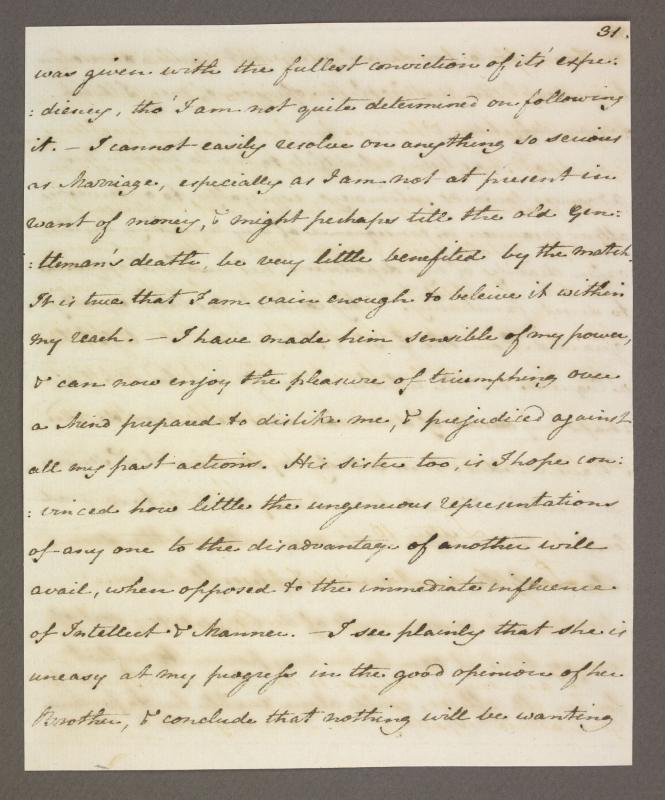 31.
was given with the fullest conviction of it's expe:
: diency, tho' I am not quite determined on following
it. – I cannot easily resolve on anything so serious
as Marriage, especially as I am not at present in
want of money, & might perhaps till the old Gen:
: tleman's death, be very little benefited by the match.
It is true that I am vain enough to beleive it within
my reach. – I have made him sensible of my power,
& can now enjoy the pleasure of triumphing over
a Mind prepared to dislike me, & prejudiced against
all my past actions. His sister too, is I hope con:
: vinced how little the ungenerous representations
of any one to the disadvantage of another will
avail, when opposed to the immediate influence
of Intellect & Manner. – I see plainly that she is
uneasy at my progress in the good opinion of her
Brother, & conclude that nothing will be wanting